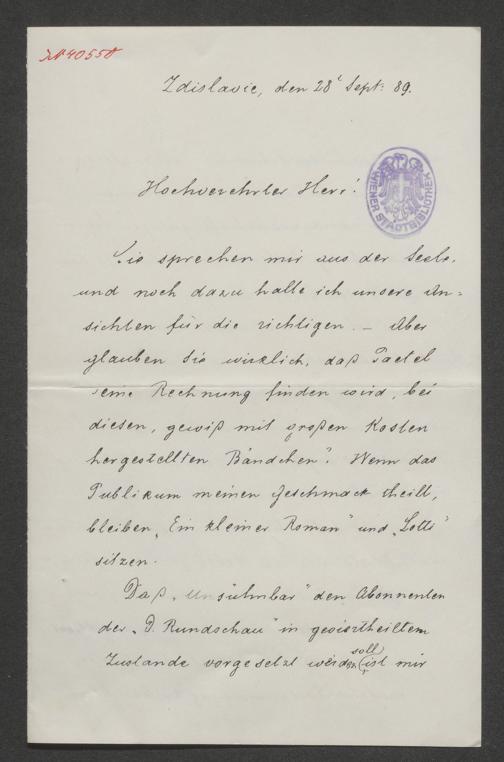 N 40558
Zdislavic, den 28t Sept: 89.
WIENER STADTBIBLIOTHEK
Hochverehrter Herr!
Sie sprechen mir aus der Seele,
und noch dazu halte ich unsere An-
sichten für die richtigen. – Aber
glauben Sie wirklich, daß Paetel
seine Rechnung finden wird, bei
diesen, gewiß mit großen Kosten
hergestellten Bändchen? Wenn das
Publikum meinen Geschmack theilt,
bleiben „Ein kleiner Roman" und „Lotti"
sitzen.
Daß „Unsühnbar" den Abonnenten
der „D. Rundschau" in geviertheiltem
soll
Zustande vorgesetzt werden ist mir